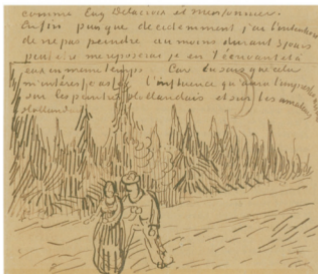 comme Eug Delacroix et Meissonnier.
Enfin puisque decidemment j'ai l'intention
de ne pas peindre au moins durant 3 jours
peut être me reposerai je en t'écrivant à la
en meme temps Car tu sais que cela
m'intéresse assez l'influence qu'aura l'impression
sur les peintres Hollandais et sur les amateurs
Holland